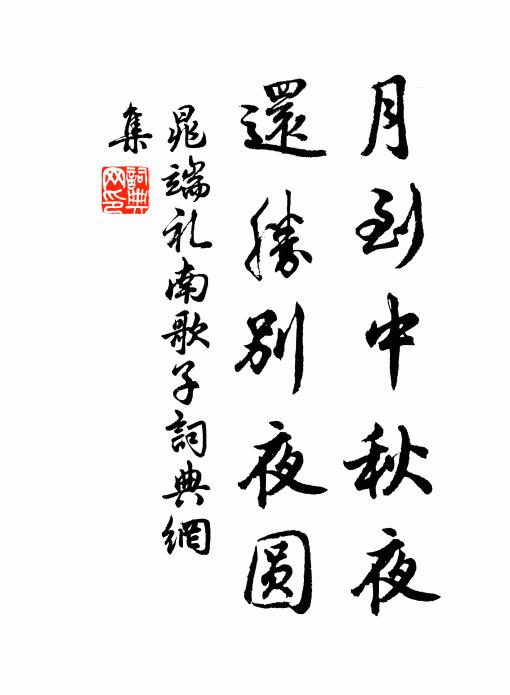 月到中秋夜
還勝別夜圓
晁端礼南歌子詞典網
集
詞典
网印